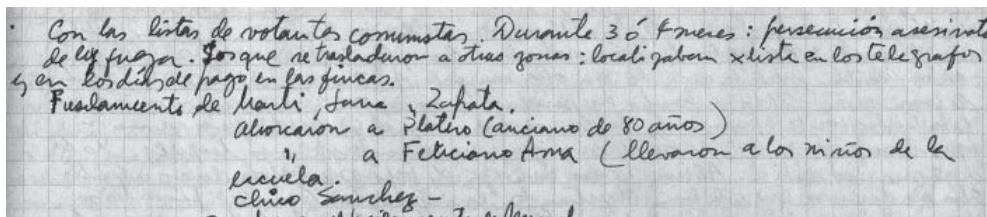 Con las listas de votantes comunistas. Durante 3 ó 4 meses: persecución asesinato
de ley fuga. Los que se trasladaron a otras zonas: localizaban x lista en los telegrafos
y en los días de pago en las fincas.
Fusilamiento de Marti, Luna y Zapata.
ahorcaron a Platero (anciano de 80 años)
" a Feliciano Ama (llevaron a los niños de la
escuela.
chico Sanchez -